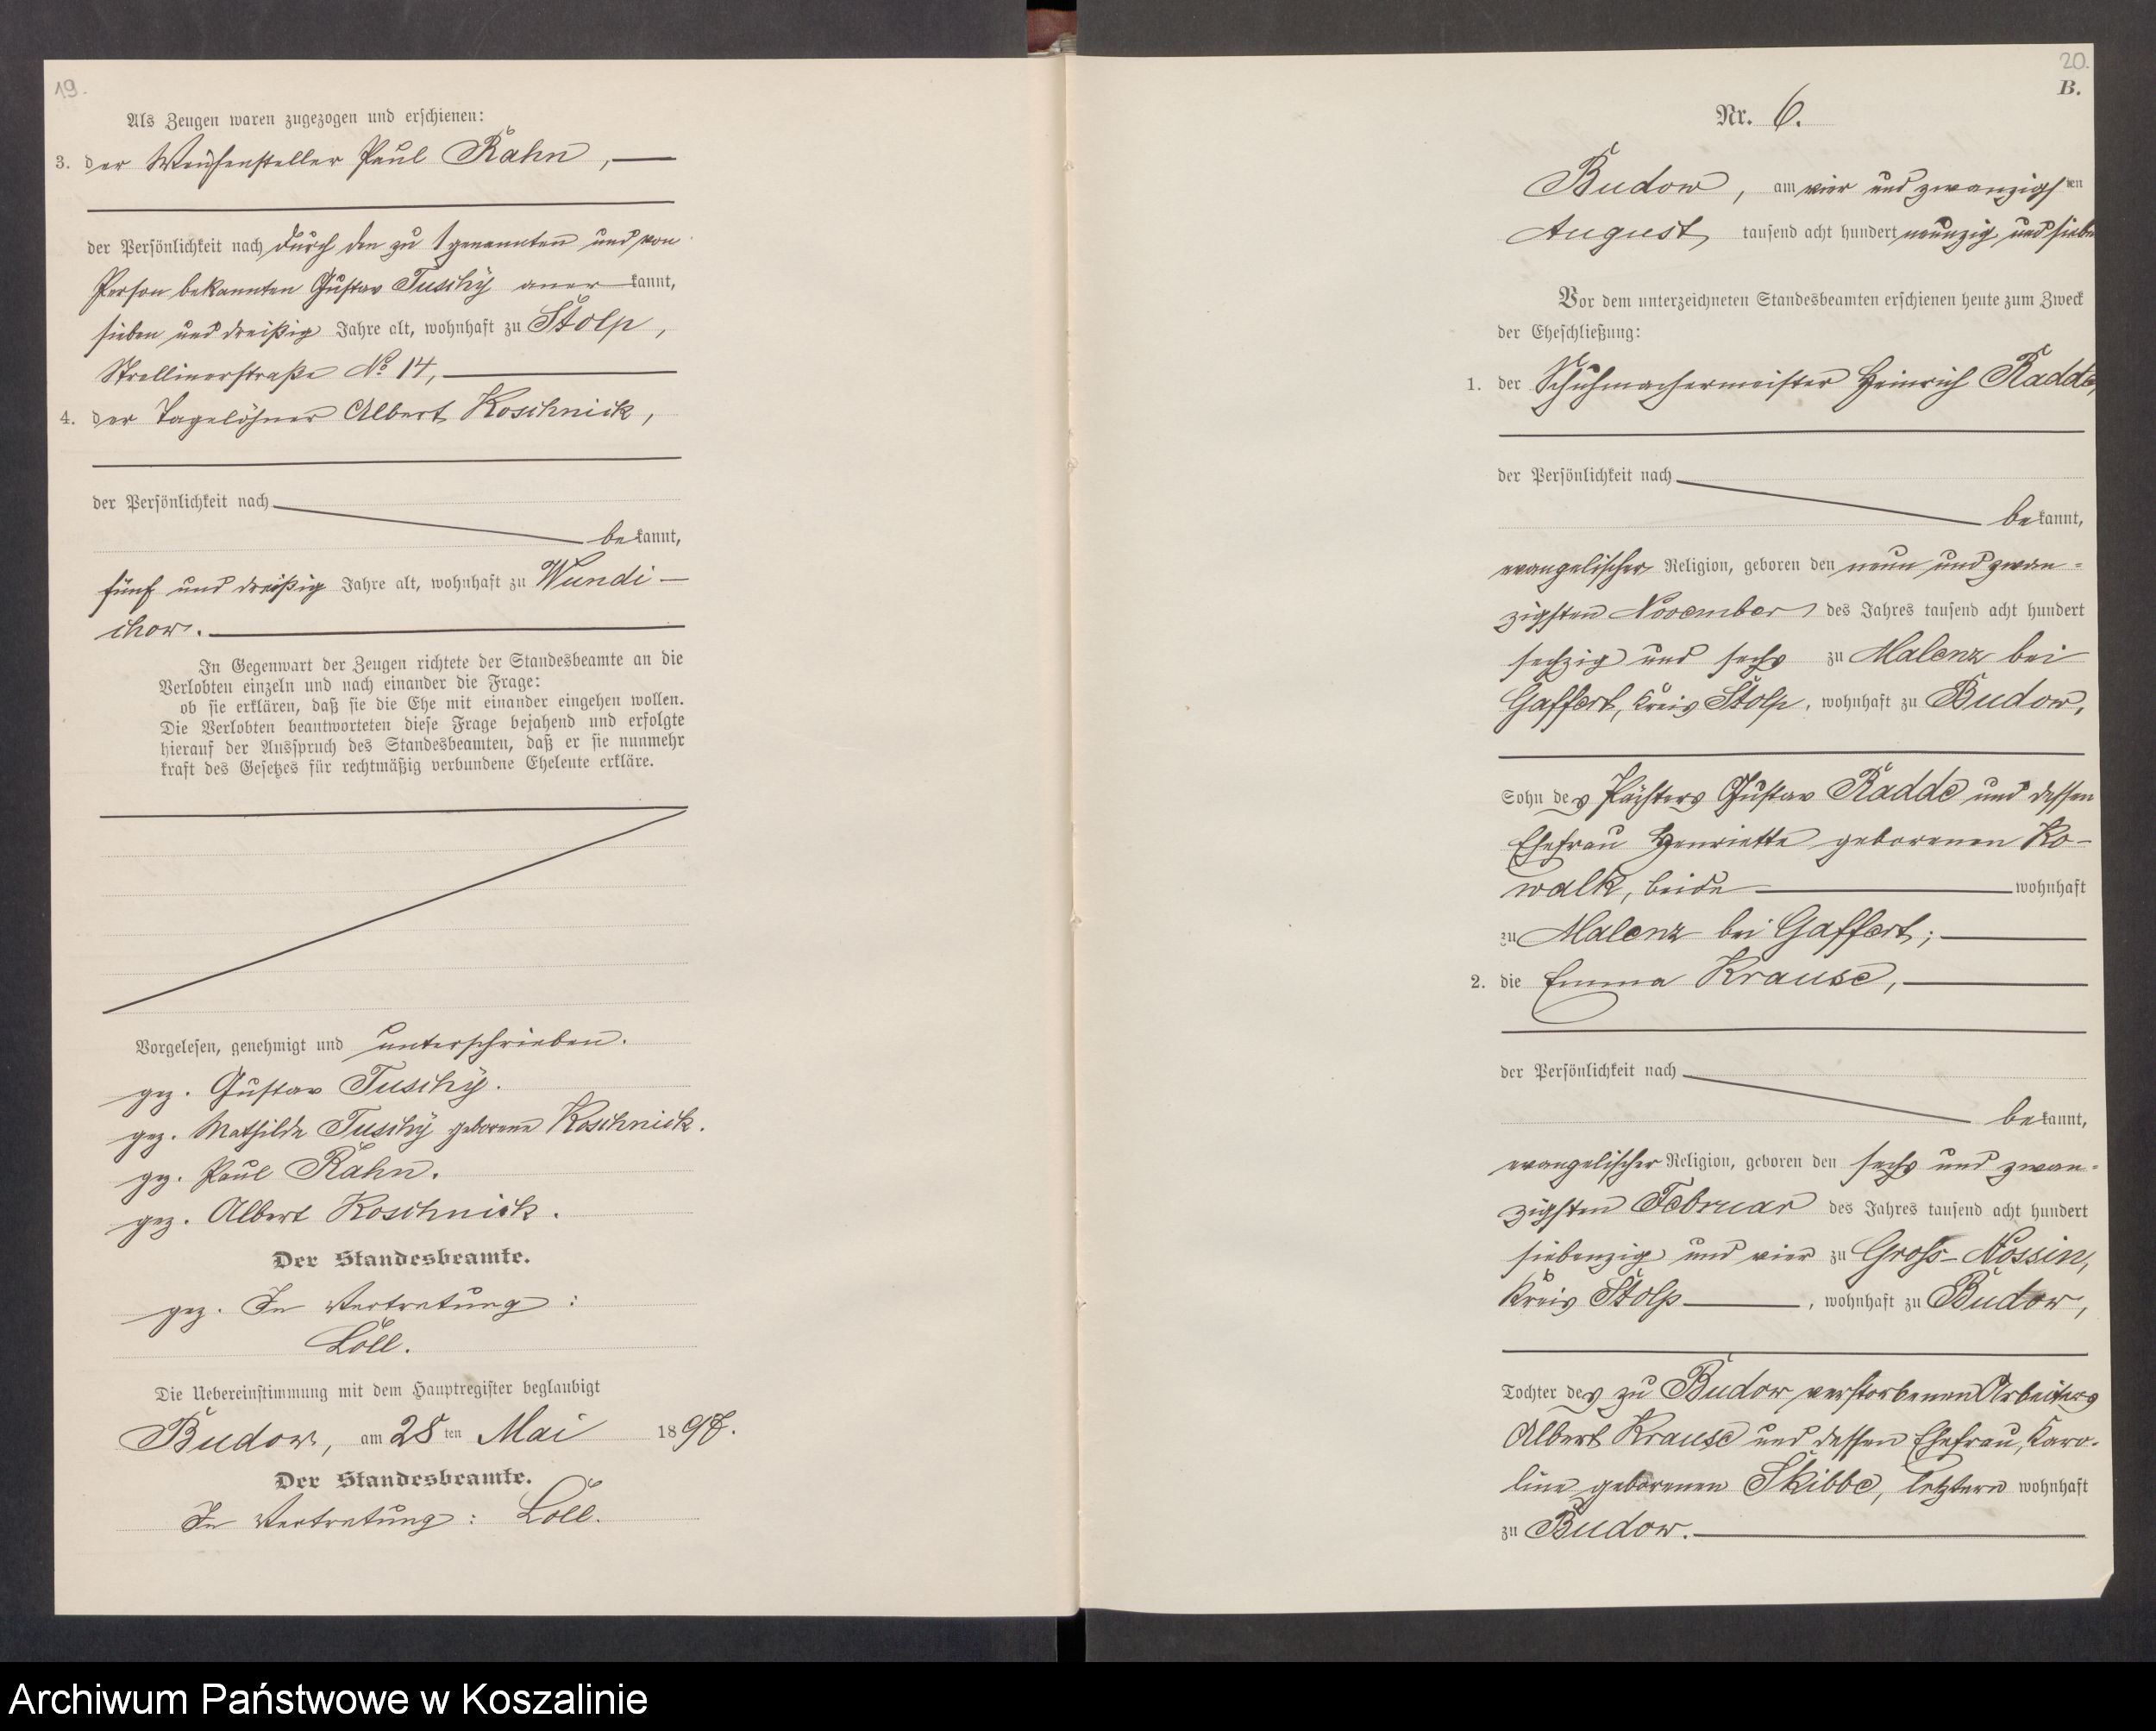 19.
Als Zeugen waren zugezogen und erschienen:
3. der Weichensteller Paul Rahn,
der Persönlichkeit nach durch den zu 1 genannten und von
Person bekannten Gustav Tuschÿ aner kannt,
sieben und dreißig Jahre alt, wohnhaft zu Stolp,
Strellinerstraße No 14,
4. der Tagelöhner Albert Koschnick,
der Persönlichkeit nach
bekannt,
fünf und dreißig Jahre alt, wohnhaft zu Wundi-
chow.
In Gegenwart der Zeugen richtete der Standesbeamte an die
Verlobten einzeln und nach einander die Frage:
ob sie erklären, daß sie die Ehe mit einander eingehen wollen.
Die Verlobten beantworteten diese Frage bejahend und erfolgte
hierauf der Ausspruch des Standesbeamten, daß er sie nunmehr
kraft des Gesetzes für rechtmäßig verbundene Eheleute erkläre.
Vorgelesen, genehmigt und unterschrieben.
gez. Gustav Tuschÿ.
gez. Mathilde Tuschÿ geborene Koschnick.
gez. Paul Rahn.
gez. Albert Koschnick.
Der Standesbeamte.
gez. In Vertretung:
Löll.
Die Uebereinstimmung mit dem Hauptregister beglaubigt
Budow, am 28 ten Mai 1897.
Der Standesbeamte.
In Vertretung: Löll.
20.
B.
Nr. 6.
Budow, am vier und zwanzigsten
August tausend acht hundert neunzig und sieben
Vor dem unterzeichneten Standesbeamten erschienen heute zum Zweck
der Eheschließung:
1. der Schuhmachermeister Heinrich Radde,
der Persönlichkeit nach
bekannt,
evangelischer Religion, geboren den neun und zwan-
zigsten November des Jahres tausend acht hundert
sechzig und sechs zu Malenz bei
Gaffert, Kreis Stolp, wohnhaft zu Budow,
Sohn des Pächters Gustav Radde und dessen
Ehefrau Henriette geborenen Ko-
walk, beide wohnhaft
zu Malenz bei Gaffert;
2. die Emma Krause,
der Persönlichkeit nach
bekannt,
evangelischer Religion, geboren den sechs und zwan-
zigsten Februar des Jahres tausend acht hundert
siebenzig und vier zu Gross-Nossin,
Kreis Stolp, wohnhaft zu Budow,
Tochter des zu Budow verstorbenen Arbeiters
Albert Krause und dessen Ehefrau, Karo-
line geborenen Skibbe, letztere wohnhaft
zu Budow.
Archiwum Państwowe w Koszalinie